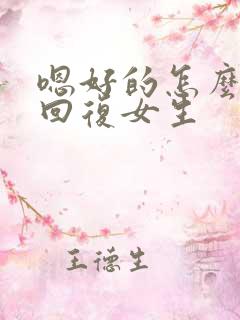 嗯好的怎麼
回復女生
王德生